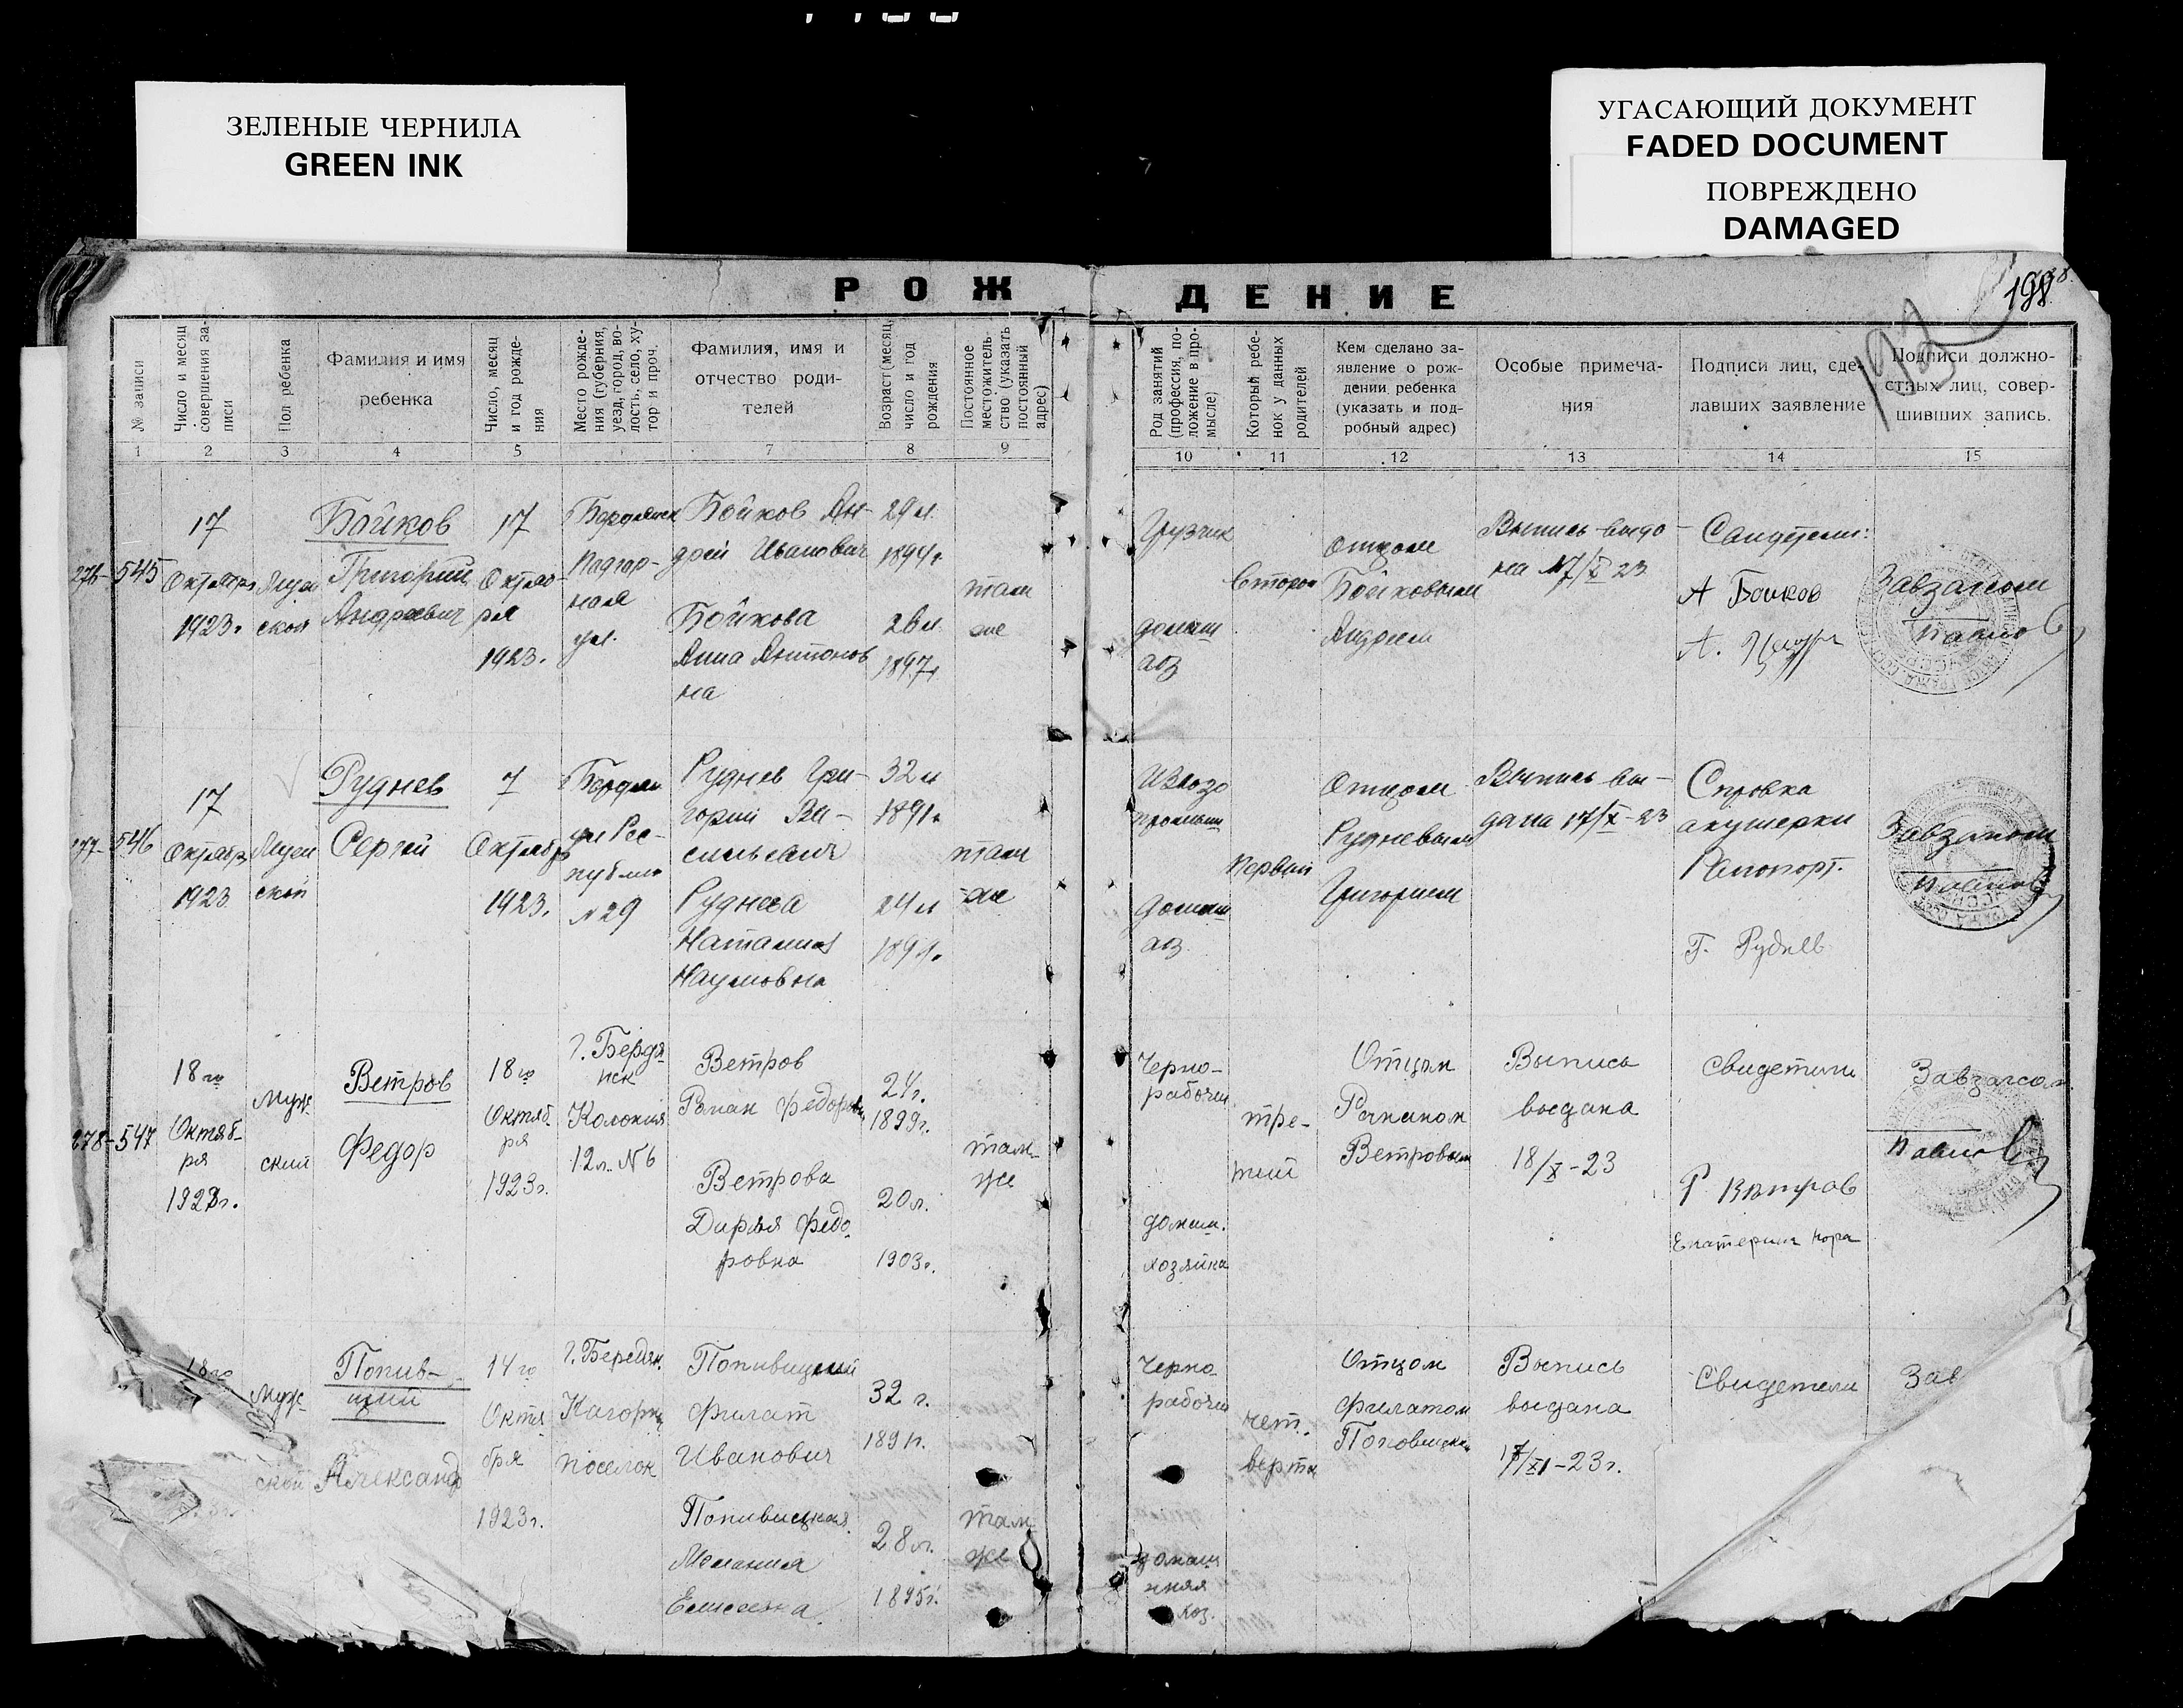 ЗЕЛЕНЫЕ ЧЕРНИЛА
GREEN INK
УГАСАЮЩИЙ ДОКУМЕНТ
FADED DOCUMENT
ПОВРЕЖДЕНО
DAMAGED
РОЖДЕНИЕ
198
№ записи
Число и месяц совершения записи
Пол ребенка
Фамилия и имя
ребенка
Число, месяц и год рождения
Место рождения (губерния, уезд, город, волость, село, хутор и проч.
Фамилия, имя и
отчество роди-
телей
Возраст (месяц, число и год рождения
Постоянное местожительство (указать постоянный адрес)
Род занятий (профессия, положение в промысле)
Который ребенок у данных родителей
Кем сделано за-
явление о рож-
дении ребенка
(указать и под-
робный адрес)
Особые примеча-
ния
Подписи лиц, сде-
лавших заявление
Подписи должно-
стных лиц, совер-
шивших запись.
1 2 3 4 5 7 8 9 10 11 12 13 14 15
276-545
17
Октября
1923г.
Муж
ской
Бойков
Григорий
Андреевич
17
Октяб-
ря
1923.
Бердянск
Нагор-
ная
ул.
Бойков Ан-
дрей Иванович
Бойкова
Анна Антонов
на
29 л.
1894г.
26 л.
1897г.
там
же
Грузчик
домаш
хоз
Второй
Отцом
Бойковым
Андреем
Выпись выда-
на 17/X 23
Свидетели:
А Бойков
Завзагсом
277-546
17
Октября
1923
Муж
ской
Руднев
Сергей
7
Октября
1923.
Бердян
ул Рес-
публик
№ 29
Руднев Гри-
горий Ва-
сильевич
Руднева
Наталия
Наумовна
32 л
1891г.
24 л
там
же
Извозо
промыш
домаш
хоз.
первый
Отцом
Рудневым
Григорием
Выпись вы-
дана 17/X-23
Справка
акушерки
Рапопорт.
Г. Руднев
Завзагсом
278-547
18го
Октяб-
ря
1923г.
муж
ский
Ветров
Федор
18го
Октяб
ря
1923г.
г. Бердя-
нск
Колония
12л. №6
Ветров
Роман Федорович
Ветрова
Дарья Федо-
ровна
24г.
1899г.
20л.
1903г.
там-
же
Черно-
рабочий
домаш.
хозяйка
тре-
тий
Отцом
Романом
Ветровым
Выпись
выдана
18/X-23
свидетели
Р Вптров
Екатерина
Завзагсом
18го
муж
ской
Попив-
щий
Александр
14го
Октя
бря
1923г.
г. Бердян.
Нагорн
поселок
Попивицкий
Филат
Иванович
Попивицкая
Мелания
Елисеевна
32 г.
1891г.
28 л.
1895г.
там
же
Черно-
рабочий
домаш
няя
хоз.
чет-
верты
Отцом
Филатом
Поповицким
Выпись
выдана
17/XI-23г.
Свидетели
Зав